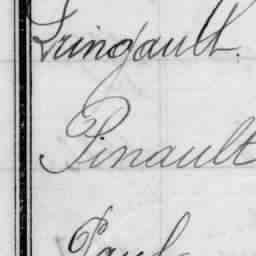 Gringault.
Pinault
Paul